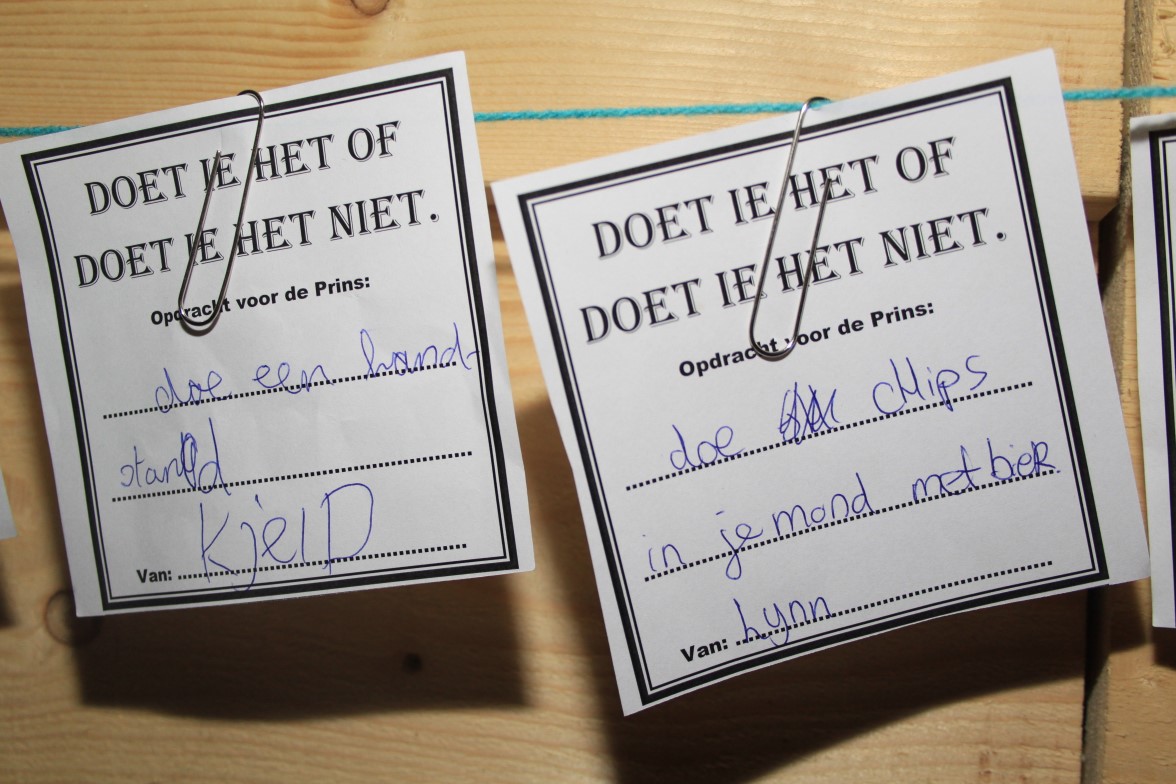 DOET IE HET OF
DOET IE HET NIET.
Opdracht voor de Prins:
doe een hand-
stand
Van: Kjeld
DOET IE HET OF
DOET IE HET NIET.
Opdracht voor de Prins:
doe chips
in je mond met bier.
Van: Lynn